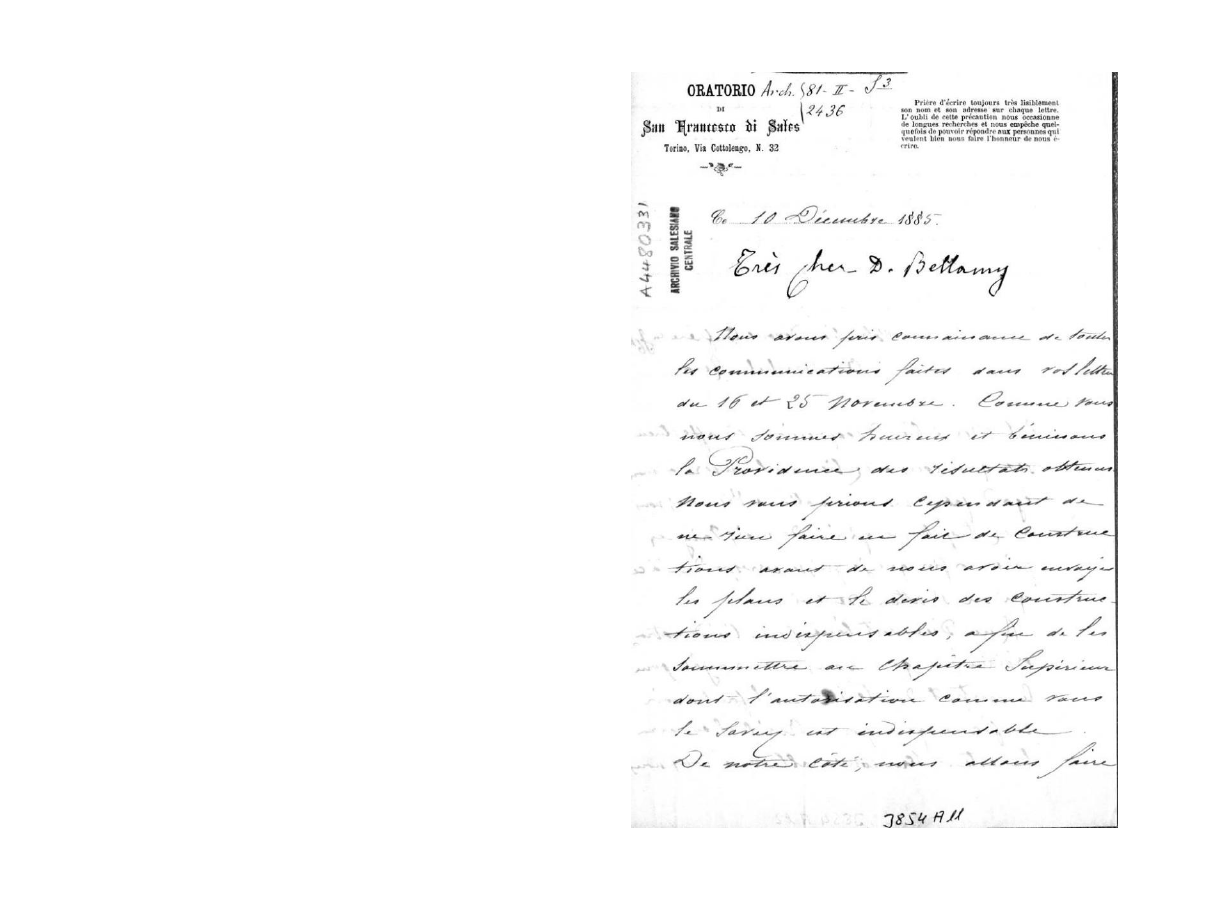 ORATORIO Arch. 81-II- S 3
DI 2436
San Francesco di Sales
Torino, Via Cottolengo, N. 32
Prière d'écrire toujours très lisiblement
son nom et son adresse sur chaque lettre.
L'oubli de cette précaution nous occazionne
de longues recherches et nous empêche quel-
quefois de pouvoir répondre aux personnes qui
veulent bien nous faire l'honneur de nous é-
crire.
A4480331
ARCHIVIO SALESIANO
CENTRALE
Ce 10 Décembre 1885.
Très cher D. Bellamy
Nous avons pris connaissance de toutes
les communications faites dans vos lettres
du 16 et 25 Novembre. Comme vous
nous sommes heureux et bénissons
la Providence des résultats obtenus
Nous vous prions cependant de
ne rien faire en fait de construc
tions avant de nous avoir envoyé
les plans et le devis des construc-
tions indispensables, afin de les
soummettre au Chapitre Supérieur
dont l'autorisation comme vous
le savez est indispensable.
De notre côté, nous allons faire
3854 A11